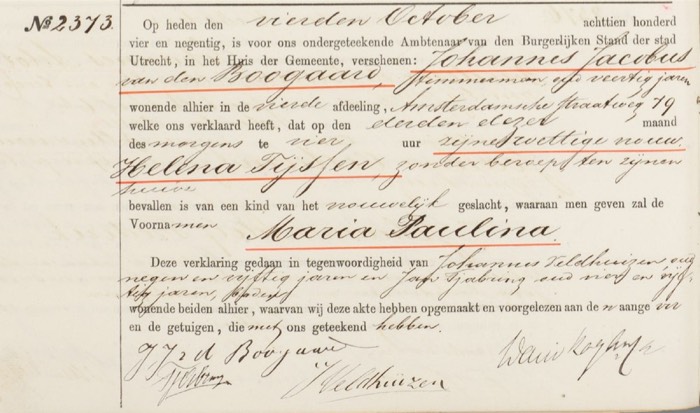 No 2373.
Op heden den vierden October achttien honderd
vier en negentig, is voor ons ondergeteekende Ambtenaar van den Burgerlijken Stand der stad
Utrecht, in het Huis der Gemeente, verschenen: Johannes Jacobus
van den Boogaard, timmerman, oud veertig jaren
wonende alhier in de vierde afdeeling, Amsterdamsche Straatweg 79
welke ons verklaard heeft, dat op den derden dezer maand
des morgens te vier uur zijne wettige vrouw
Helena Tijssen, zonder beroep, ten zijnen
huize
bevallen is van een kind van het vrouwelijk geslacht, waaraan men geven zal de
Voornamen Maria Paulina.
Deze verklaring gedaan in tegenwoordigheid van Johannes Veldhuizen oud
negen en vijftig jaren en Jan oud vier en vijf
tig jaren,
wonende beiden alhier, waarvan wij deze akte hebben opgemaakt en voorgelezen aan de n aange ver
en de getuigen, die met ons geteekend hebben.
J J v d Boogaard
Veldhuizen